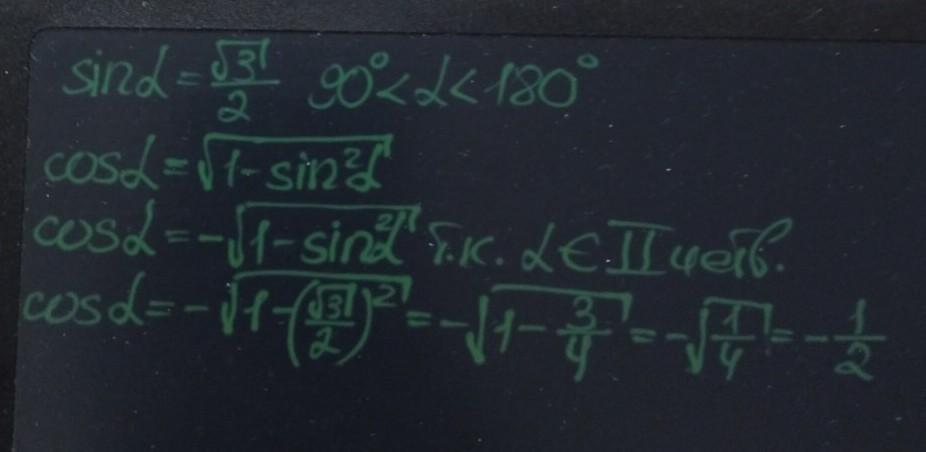 sinα = √3/2 90° < α < 180°
cosα = √(1 - sin²α)
cosα = -√(1 - sin²α) т.к. α ∈ II четв.
cosα = -√(1 - (√3/2)²) = -√(1 - 3/4) = -√(1/4) = -1/2